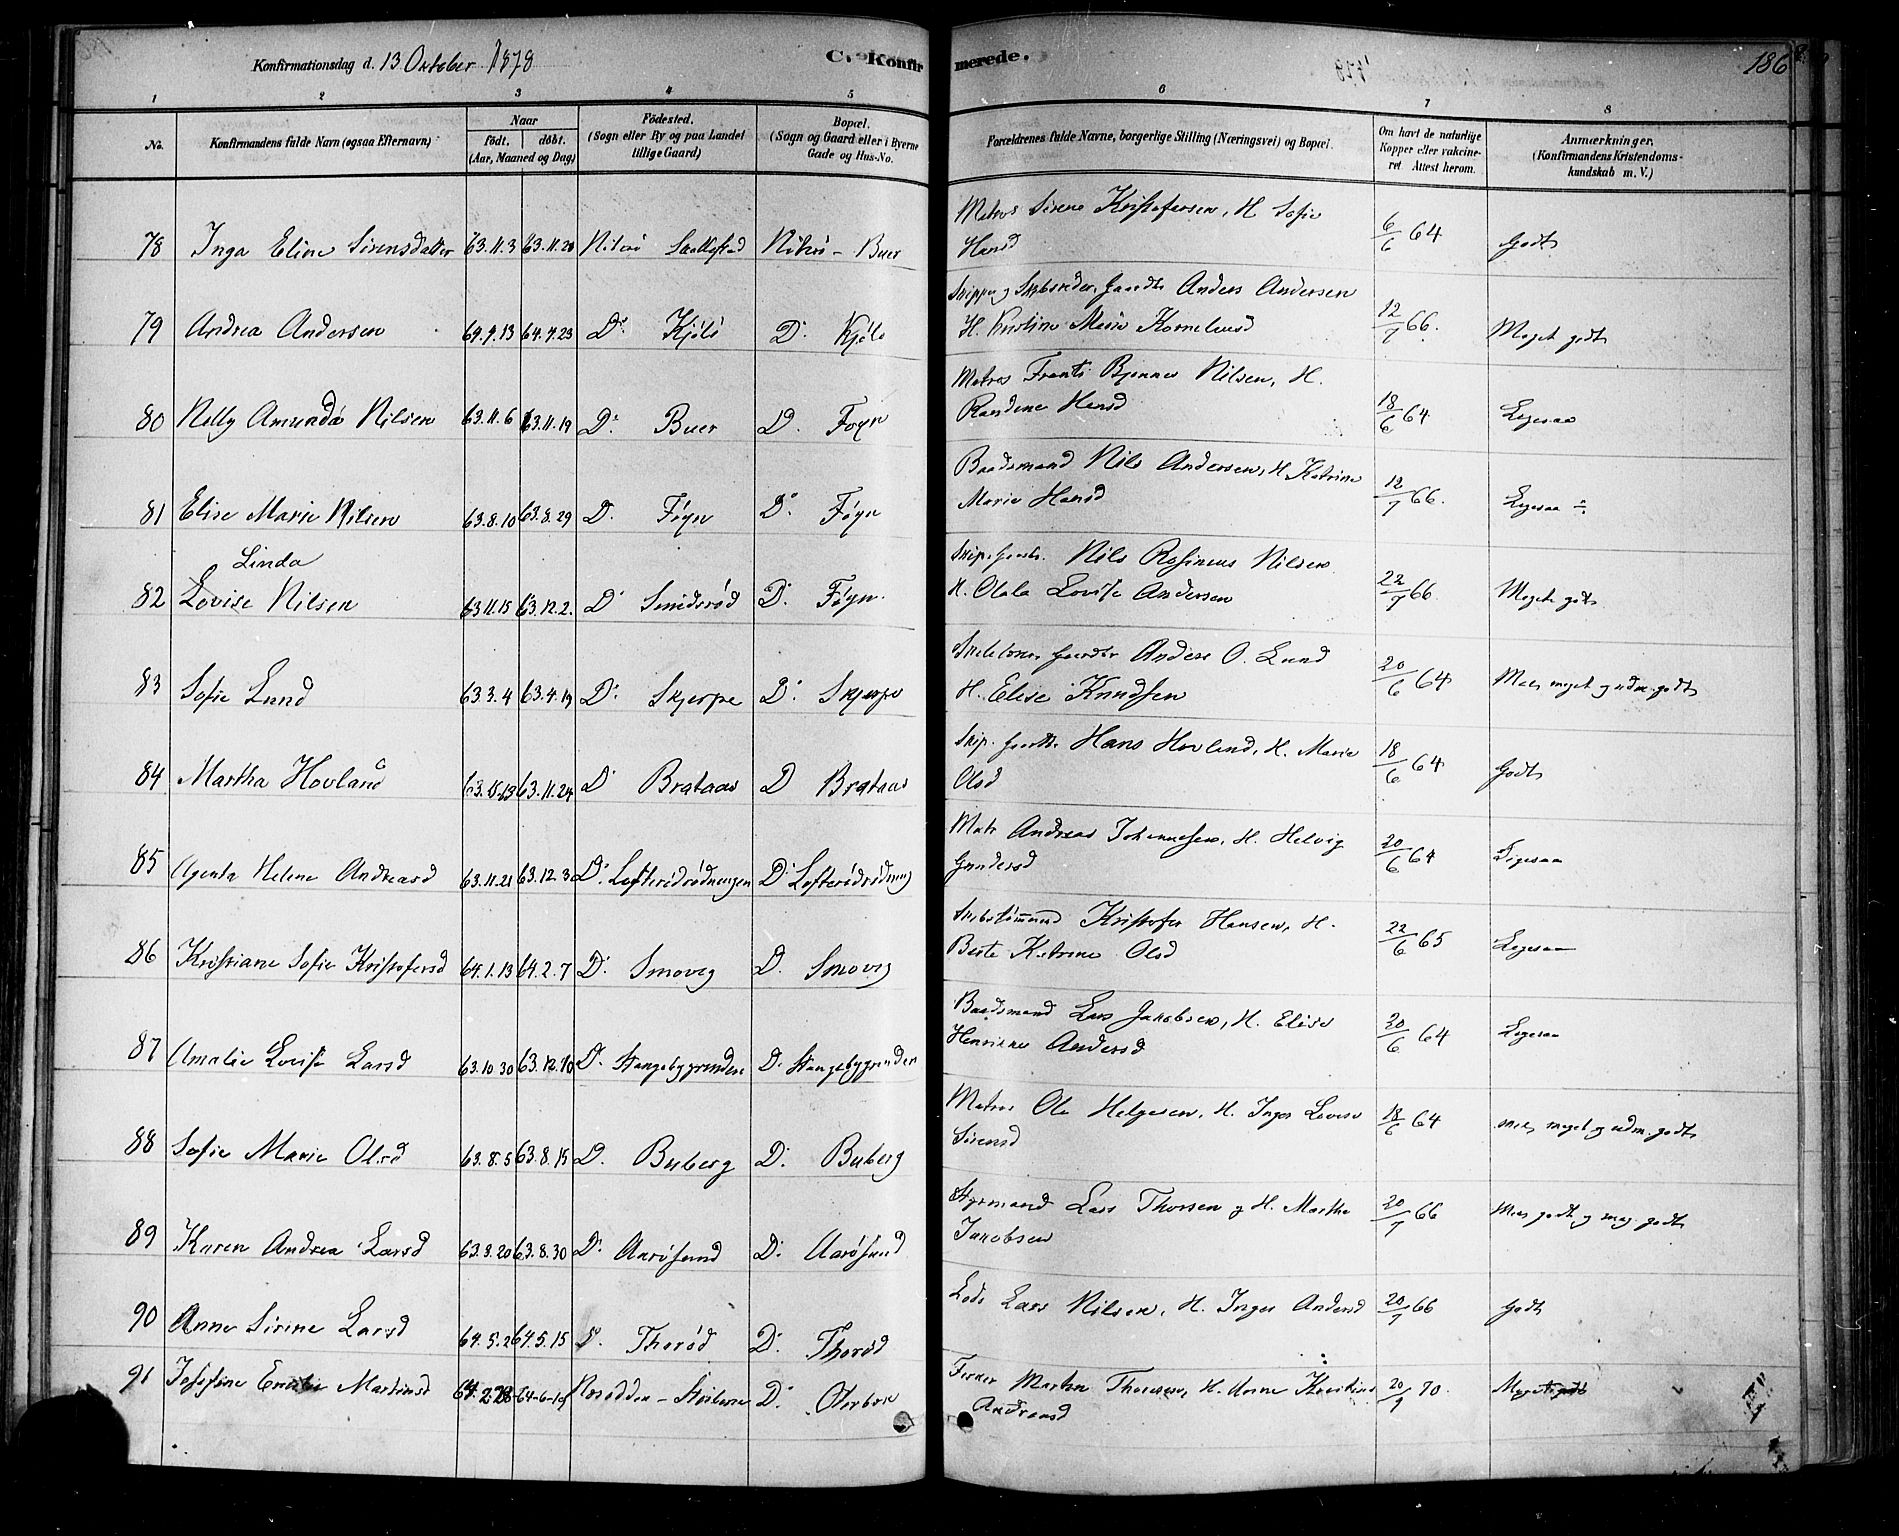 Konfirmationsdag d. 13 Oktober 1878
C. Konfirmerede.
186
1 2 3 4 5 6 7 8
No.
Konfirmandens fulde Navn (ogsaa Efternavn)
Naar
födt. döbt.
(Aar, Maaned og Dag)
Födested.
(Sogn eller By og paa Landet
tillige Gaard)
Bopæl.
(Sogn og Gaard eller i Byerne
Gade og Hus-No.
Forældrenes fulde Navne, borgerlige Stilling (Næringsvei) og Bopæl.
Om havt de naturlige
Kopper eller vakcine-
ret. Attest herom.
Anmærkninger.
(Konfirmandens Kristendoms-
kundskab m. V.)
Matros Sirene Kristofersen, H. Sofie
78 Inga Eline Sirensdatter 63.11.3 63.11.20 Nøterö Nøterö - Buer Hansd 6/6 64 Godt
Skipper Gaardbr Anders Andersen
79 Andrea Andersen 64.4.13 64.4.23 Do Kjölö D. Kjölö H. Kristine Marie Korneliusd 12/7 66. Meget godt
Matros Frants Bjennes Nilsen, H.
80 Nelly Amunda Nilsen 63.11.6 63.11.19 Do Buer D. Föyn Randine Hansd 18/6 64 Ligesaa
Baadsmand Nils Andersen, H. Katrine
81 Elise Marie Nilsen 63.8.10 63.8.29 D. Föyn Do Föyn Marie Hansd 12/7 66. Ligesaa ÷
Linda
Skip. Gaardb. Nils Rosinius Nilsen
82 Lovise Nilsen 63.11.15 63.12.2. Do Smidsröd D. Föyn H. Olala Lovise Andersen 22/7 66 Meget godt
Gaardbr Anders O. Lund
83 Sofie Lund 63.3.4 63.4.19 Do Skjerpe Do Skjerpe H. Elise Knudsen 20/6 64 Mell. meget og udm. godt
Skip. Gaardb. Hans Hovland, H. Marie
84 Martha Hovland 63.11.24 Do Brataas D Brataas Olsd 18/6 64 Godt
Matr Andreas Johannesen, H. Helvig
85 Agenta Helene Andreasd 63.11.21 63.12.3 Do Lofterödrödningen Do Lofterödrödning Gundersd 20/6 64 Ligesaa
Skibstömmermd Kristofer Hansen, H.
86 Kristiane Sofie Kristofersd 64.1.13 64.2.7 Do Smovig D. Smovig Berte Katrine Olsd 22/6 65 Ligesaa
Baadsmand Lars Jakobsen, H. Elise
87 Amalie Lovise Larsd 63.10.30 63.12.10 D. Stangebygrunden D. Stangebygrunden Henriette Andersd 20/6 64 Ligesaa
Matros Ole Helgesen, H. Inger Lovise
88 Sofie Marie Olsd 63.8.5 63.8.15 D. Buberg D. Buberg Sirensd 18/6 64 mell. meget og udm. godt
Styrmand Lars Thorsen og H. Martha
89 Karen Andrea Larsd 63.3.20 63.8.30 Do Aaröesund D. Aaröesund Jakobsen 20/7 66 Mell. godt og meg. godt
90 Anne Sirine Larsd 64.5.2 64.5.15 D. Thoröd D. Thoröd Lods Lars Nilsen, H. Inger Andersd 20/7 66 Godt
91 Josefine Emilie Martinsd 64.2.28 64-6-19 Nesodden - Do Oterbæk Martin Thoresen, H. Anne Kristine 20/9 70. Meget godt
Andreasd